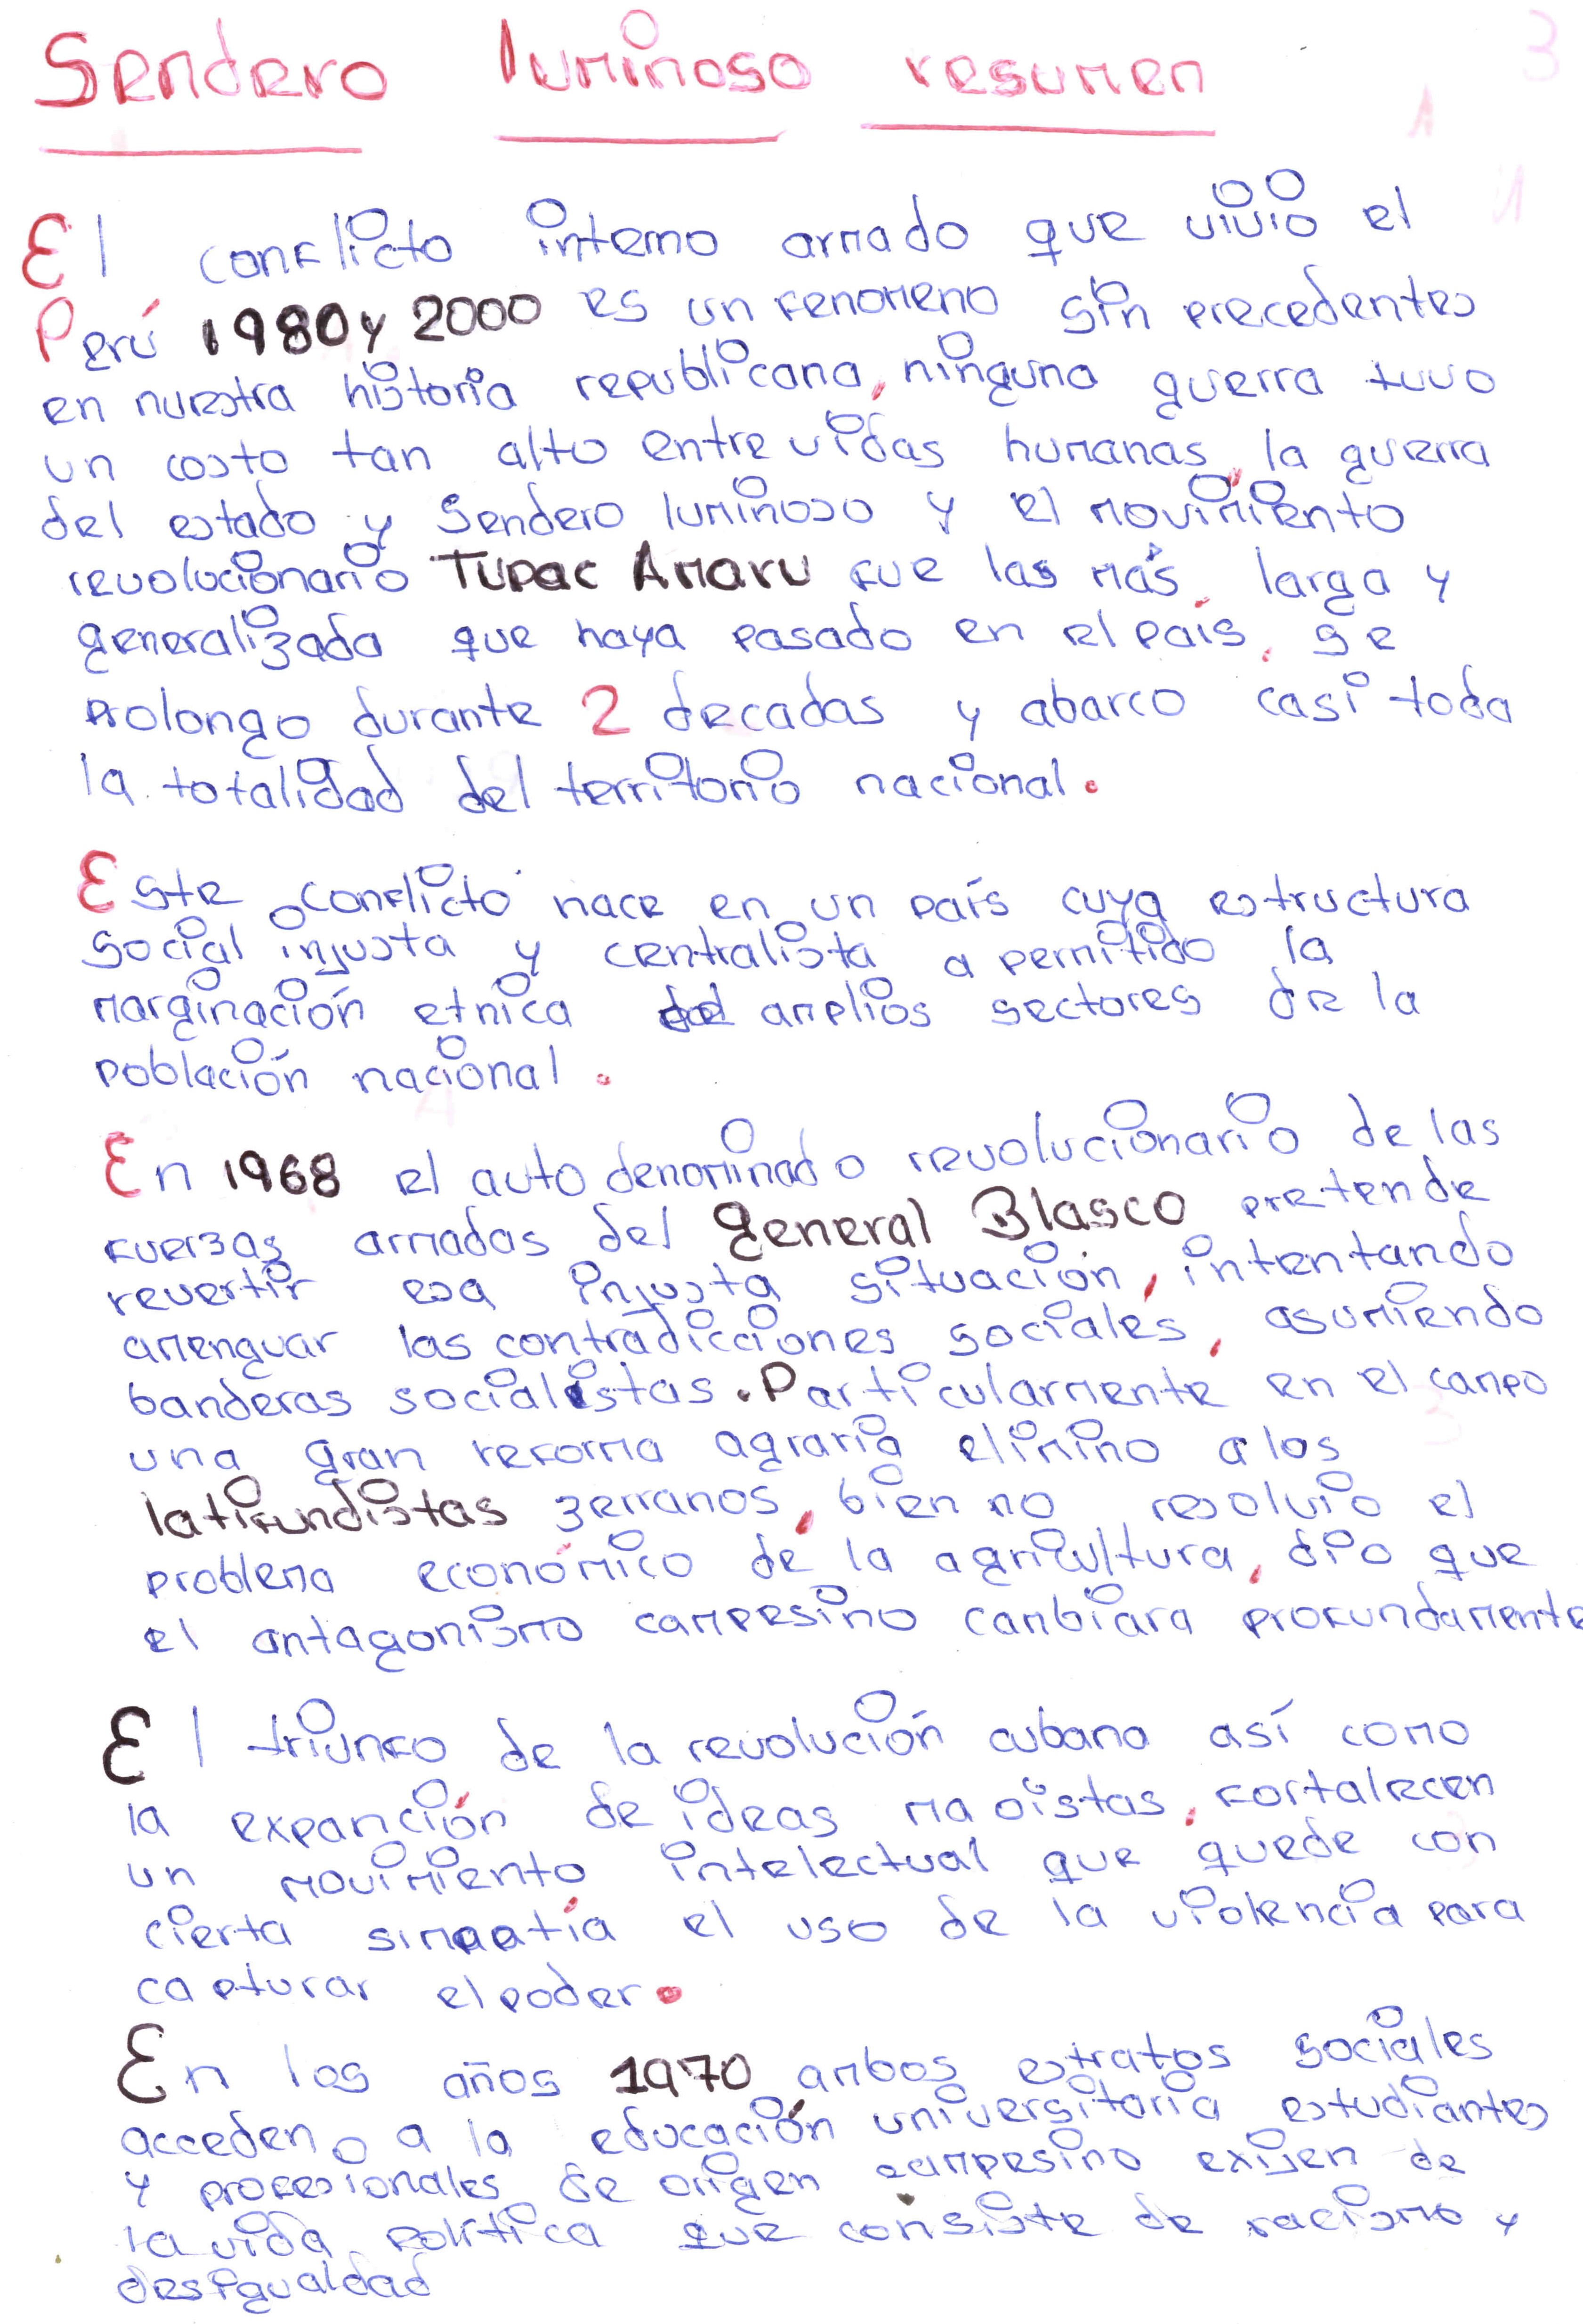 Sendero luminoso resumen
El conflicto interno armado que vivió el
Perú 1980 y 2000 es un fenomeno sin precedentes
en nuestra historia republicana, ninguna guerra tuvo
un costo tan alto entre vidas humanas, la guerra
del estado y Sendero luminoso y el movimiento
revolucionario Tupac Amaru fue las más larga y
generalizada que haya pasado en el país, se
prolongo durante 2 decadas y abarco casi toda
la totalidad del territorio nacional.
Este conflicto nace en un país cuya estructura
social injusta y centralista a permitido la
marginación etnica de amplios sectores de la
población nacional.
En 1968 el auto denominado revolucionario de las
fuerzas armadas del general Blasco pretende
revertir esa injusta situación, intentando
amenguar las contradicciones sociales, asumiendo
banderas socialistas. Particularmente en el campo
una gran reforma agraria elimino a los
latifundistas zerranos, bien no resolvio el
problema económico de la agricultura, dio que
el antagonismo campesino cambiara profundamente
El triunfo de la revolución cubana así como
la expanción de ideas maoistas, fortalecen
un movimiento intelectual que quede con
cierta simpatía el uso de la violencia para
capturar el poder.
En los años 1970 ambos estratos sociales
acceden a la educación universitaria estudiantes
y profesionales de origen campesino exijen de
la vida política que consiste de racismo y
desigualdad